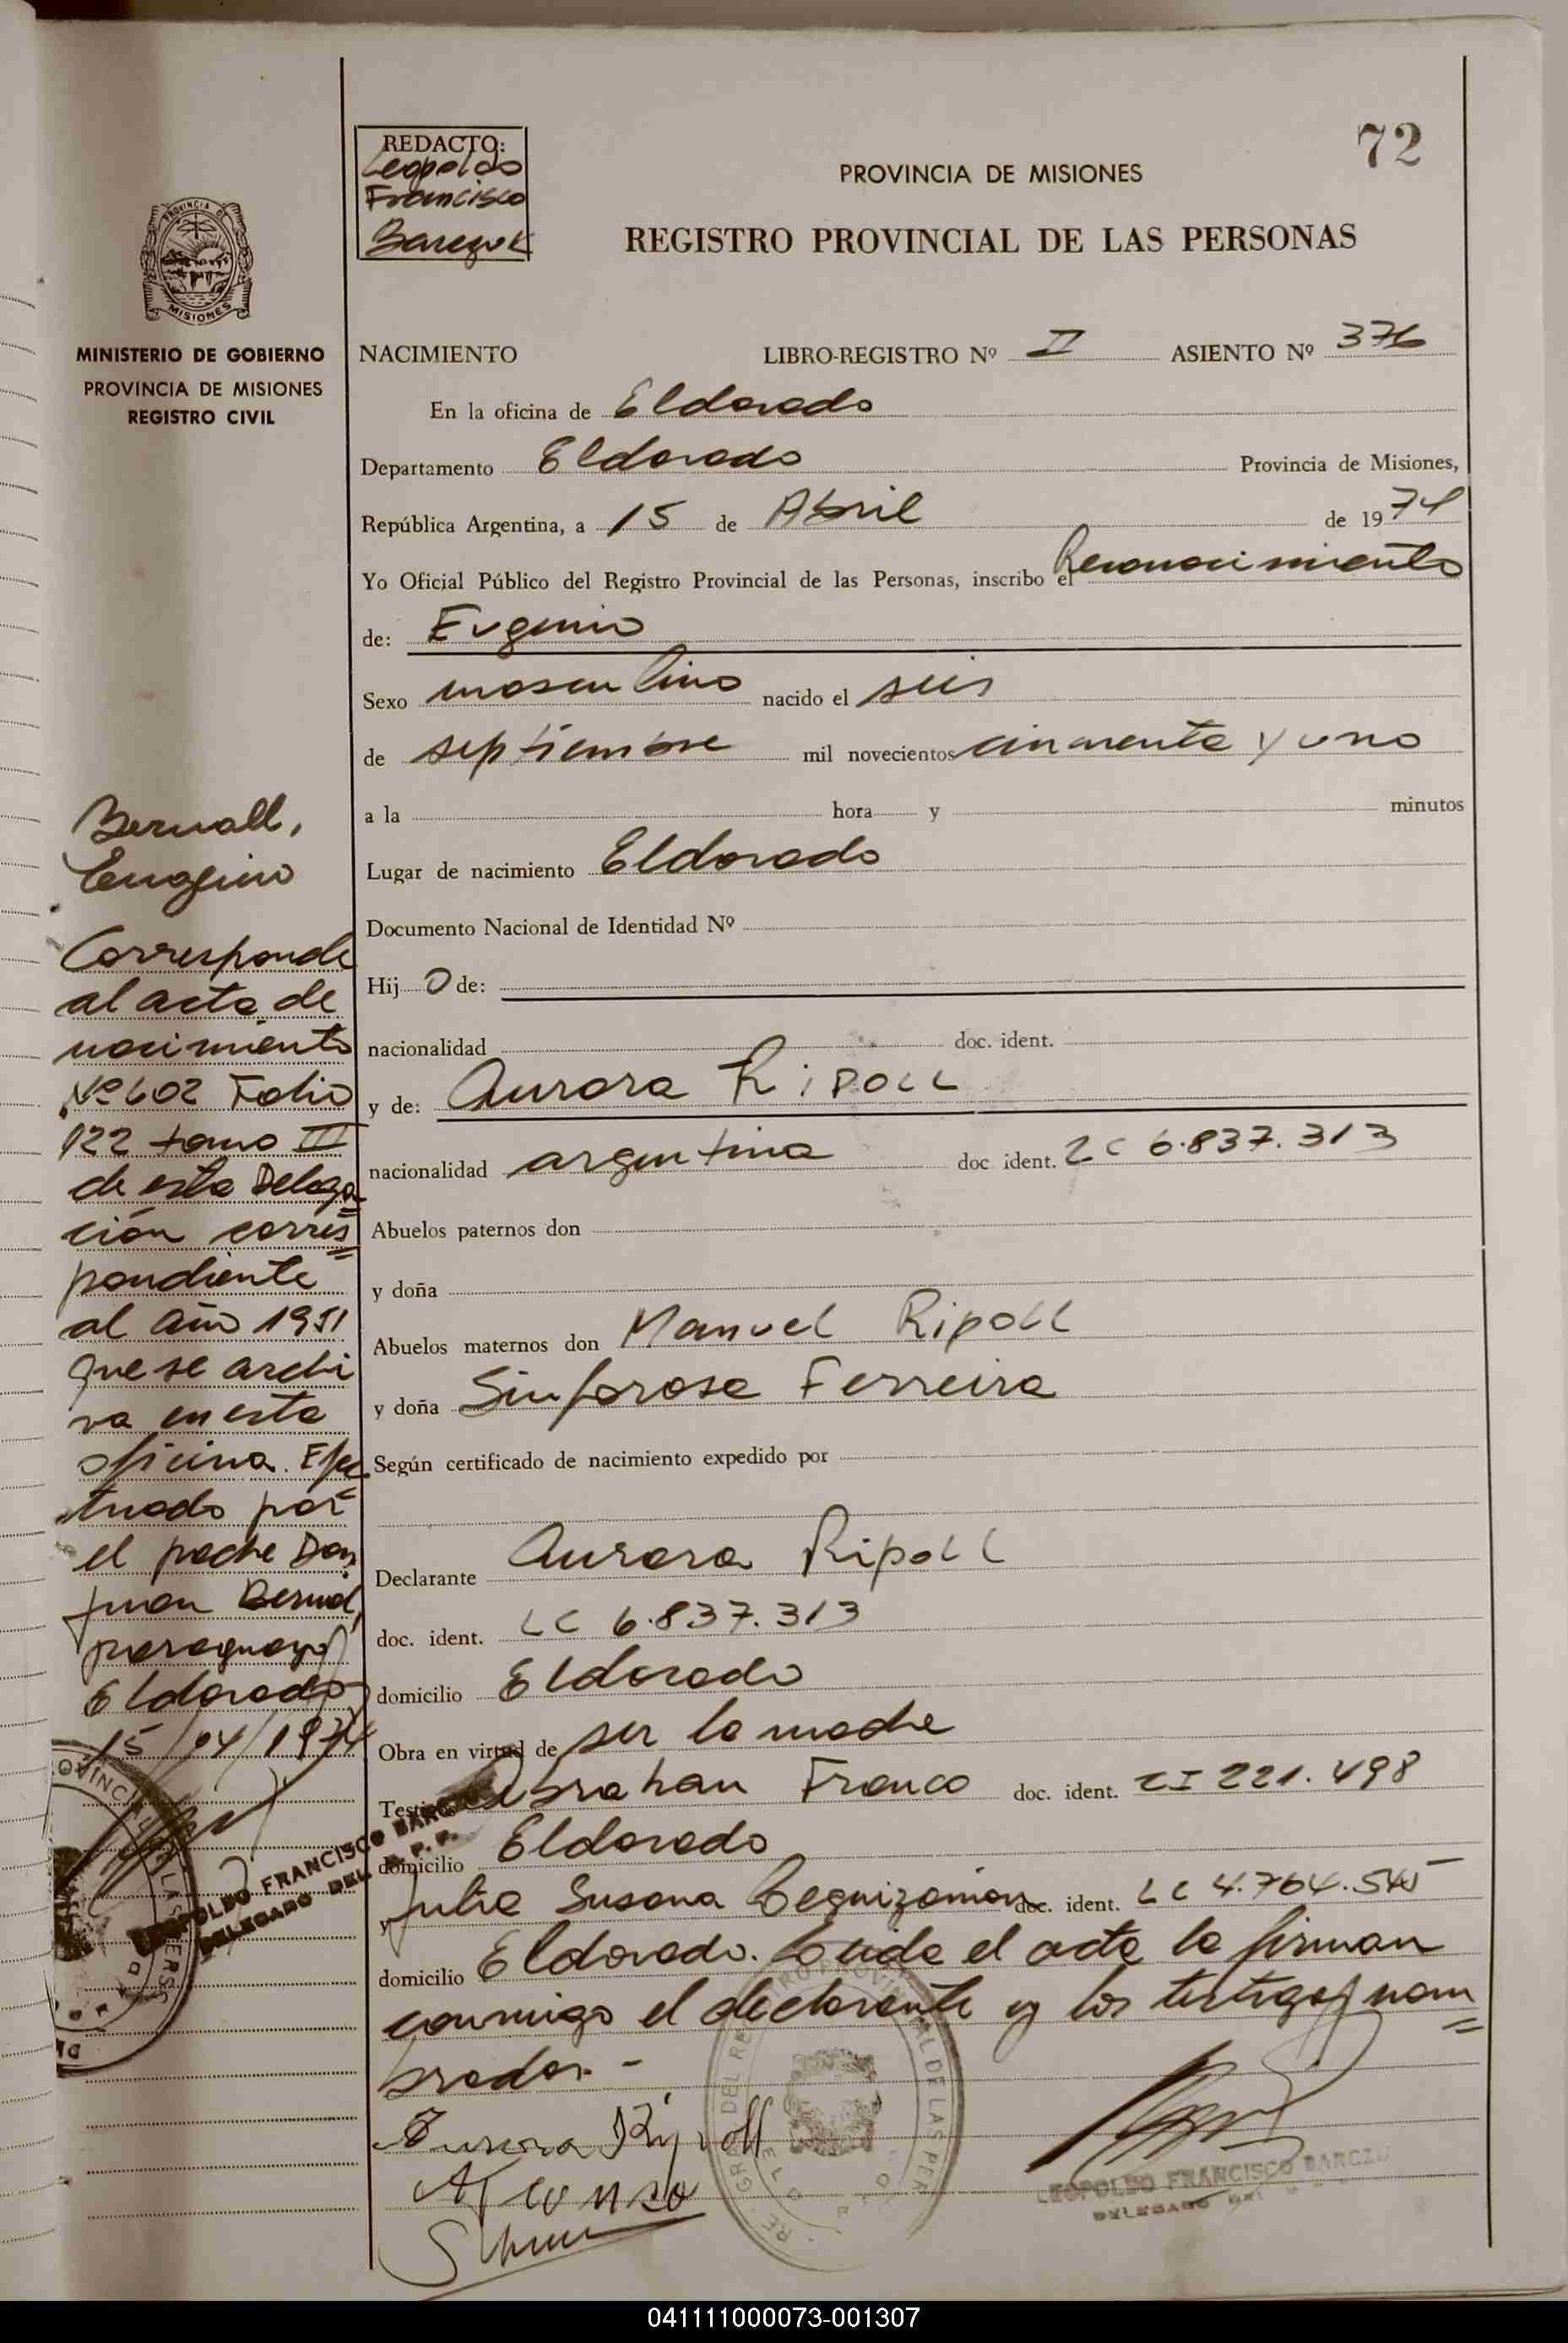 72
REDACTO:
Leopoldo
Francisco
PROVINCIA DE MISIONES
REGISTRO PROVINCIAL DE LAS PERSONAS
PROVINCIA DE
MISIONES
MINISTERIO DE GOBIERNO
PROVINCIA DE MISIONES
REGISTRO CIVIL
NACIMIENTO LIBRO-REGISTRO Nº II ASIENTO Nº 376
En la oficina de Eldorado
Departamento Eldorado Provincia de Misiones,
República Argentina, a 15 de Abril de 1974
Yo Oficial Público del Registro Provincial de las Personas, inscribo el Reconocimiento
de: Eugenio
Sexo masculino nacido el seis
de septiembre mil novecientos cincuenta y uno
a la hora y minutos
Lugar de nacimiento Eldorado
Documento Nacional de Identidad Nº
Hij O de:
nacionalidad doc. ident.
y de: Aurora Ripoll
nacionalidad argentina doc ident. LC 6.837.313
Abuelos paternos don
y doña
Abuelos maternos don Manuel Ripoll
y doña Sinforosa Ferreira
Según certificado de nacimiento expedido por
Declarante Aurora Ripoll
doc. ident. LC 6.837.313
domicilio Eldorado
Obra en virtud de ser la madre
Testigos Abrahan Franco doc. ident. CI 221.498
domicilio Eldorado
y Julia Susana doc. ident. LC
domicilio Eldorado. Leida el acta la firman
conmigo el declarante y los testigos nom
brados.-
Aurora Ripoll
LEOPOLDO FRANCISCO
DELEGADO DEL
Eugenio
Corresponde
al acta de
nacimiento
Nº 602 Folio
122 tomo III
de esta Delega
ción corres
pondiente
al año 1951
que se archi
va en esta
oficina. Efec
tuado por
el padre Don
Juan
paraguayo
Eldorado
15/04/1974
LEOPOLDO FRANCISCO
DELEGADO DEL R. P. P.
041111000073-001307